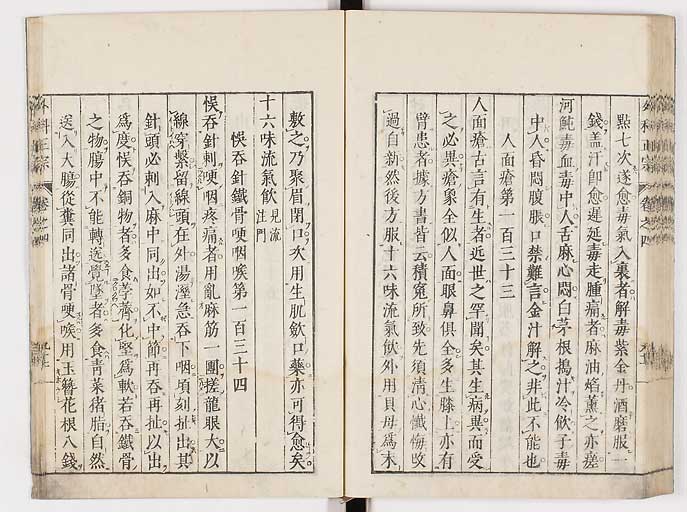 點七次遂愈毒氣入裏者解毒紫金丹酒磨服一
錢盖汗即愈遲延毒走腫痛者麻油焰薫之亦瘥
河魨毒血毒中人舌麻心悶白茅根搗汁冷飲子毒
中人昏悶腹脹口禁難言金汁解之非此不能也
人面瘡第一百三十三
人面瘡古言有生者近世之罕聞矣其生病異而受
之必異瘡象全似人面眼鼻俱全多生膝上亦有
臂患者據方書皆云積冤所致先須清心懺悔改
過自新然後方服十六味流氣飲外用貝母為末
敷之乃聚眉閉口次用生肌斂口藥亦可得愈矣
十六味流氣飲 見流注門
悞吞針鐵骨哽咽喉第一百三十四
悞吞針刺哽咽疼痛者用亂麻筋一團搓龍眼大以
線穿繫留線頭在外湯溼急吞下咽頃刻扯出其
針頭必刺入麻中同出如不中節再吞再扯以出
為度悞吞銅物者多食荸薺化堅為軟若吞鐵骨
之物腸中不能轉送覺墜者多食青菜猪脂自然
送入大腸從糞同出諸骨哽喉用玉簪花根八錢
外科正宗 卷之四
外科正宗 卷之四